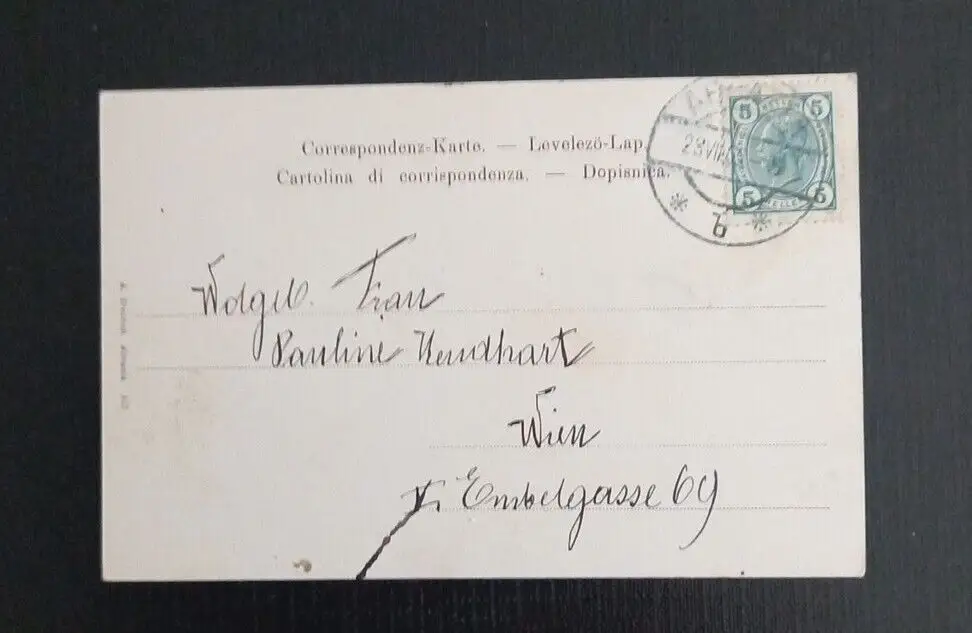 Correspondenz-Karte. — Levelezö-Lap.
Cartolina di corrispondenza. — Dopisnica.
5 5
28 VII
5 5
b
Wolgeb. Frau
Pauline
Wien
V. Embelgasse 69